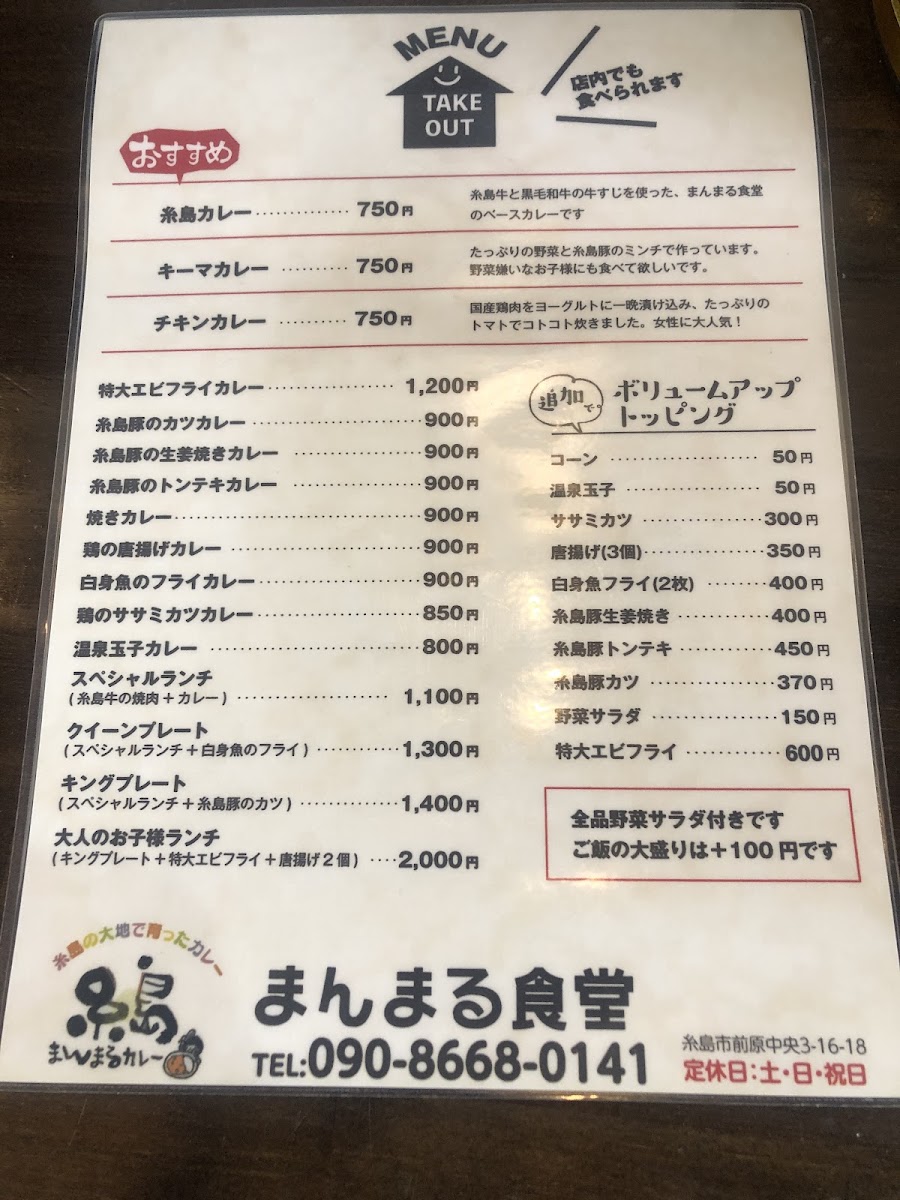 MENU
TAKE
OUT
店内でも
食べられます
おすすめ
糸島カレー ………… 750円
糸島牛と黒毛和牛の牛すじを使った、まんまる食堂
のベースカレーです
キーマカレー ……… 750円
たっぷりの野菜と糸島豚のミンチで作っています。
野菜嫌いなお子様にも食べて欲しいです。
チキンカレー ……… 750円
国産鶏肉をヨーグルトに一晩漬け込み、たっぷりの
トマトでコトコト炊きました。女性に大人気！
特大エビフライカレー ……………… 1,200円
糸島豚のカツカレー ……………… 900円
糸島豚の生姜焼きカレー ……………… 900円
糸島豚のトンテキカレー ……………… 900円
焼きカレー ……………… 900円
鶏の唐揚げカレー ……………… 900円
白身魚のフライカレー ……………… 900円
鶏のササミカツカレー ……………… 850円
温泉玉子カレー ……………… 800円
スペシャルランチ
(糸島牛の焼肉＋カレー) ……………… 1,100円
クイーンプレート
(スペシャルランチ＋白身魚のフライ) ………… 1,300円
キングプレート
(スペシャルランチ＋糸島豚のカツ) ………… 1,400円
大人のお子様ランチ
(キングプレート＋特大エビフライ＋唐揚げ２個) …. 2,000円
追加で。
ボリュームアップ
トッピング
コーン ……………… 50円
温泉玉子 ……………… 50円
ササミカツ ……………… 300円
唐揚げ(3個) ……………… 350円
白身魚フライ(2枚) ……… 400円
糸島豚生姜焼き ………… 400円
糸島豚トンテキ ………… 450円
糸島豚カツ ……………… 370円
野菜サラダ ……………… 150円
特大エビフライ ………… 600円
全品野菜サラダ付きです
ご飯の大盛りは＋100円です
糸島の大地で育ったカレー
糸島
まんまるカレー
まんまる食堂
TEL:090-8668-0141
糸島市前原中央3-16-18
定休日：土・日・祝日